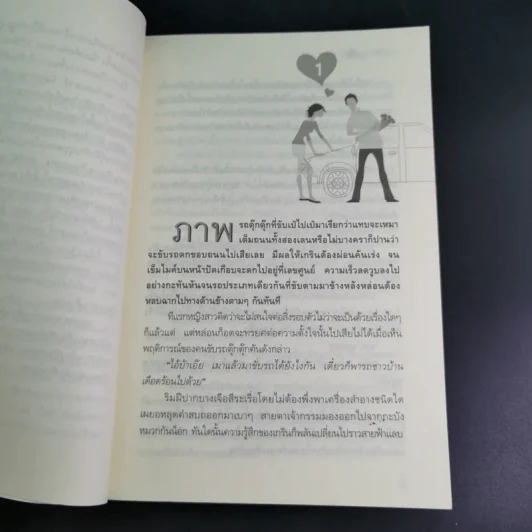 1
ภาพ
รถตุ๊กตุ๊กที่ขับเป๋ไปเป๋มาเรียกว่าแทบจะเหมา
เต็มถนนทั้งสองเลนหรือไม่บางคราก็ปานว่า
จะขับรถตกขอบถนนไปเสียเลย มีผลให้เกรินต้องผ่อนคันเร่ง จน
เข็มไมค์บนหน้าปัดเกือบจะตกไปอยู่ที่เลขศูนย์ ความเร็วลดวูบลงไป
อย่างกะทันหันจนรถประเภทเดียวกันที่ขับตามมาข้างหลังหล่อนต้อง
หลบฉากไปทางด้านข้างตามๆ กันทันที
ทีแรกหญิงสาวคิดว่าจะไม่สนใจต่อสิ่งรอบตัวไม่ว่าจะเป็นด้วยเรื่องใดๆ
ก็แล้วแต่ แต่หล่อนก็อดจะทรยศต่อความตั้งใจนั้นไปเสียไม่ได้เมื่อเห็น
พฤติการณ์ของคนขับรถตุ๊กตุ๊กคันดังกล่าว
“ไอ้บ้าเอ๊ย เมาแล้วมาขับรถได้ยังไงกัน เดี๋ยวก็พารถชาวบ้าน
เดือดร้อนไปด้วย”
ริมฝีปากบางเจือสีระเรื่อโดยไม่ต้องพึ่งพาเครื่องสำอางชนิดใด
เผยอหลุดคำสบถออกมาเบาๆ สายตาเจ้ากรรมมองออกไปจากกะบัง
หมวกกันน็อก ทันใดนั้นความรู้สึกของเกรินก็พลันเปลี่ยนไปราวสายฟ้าแลบ